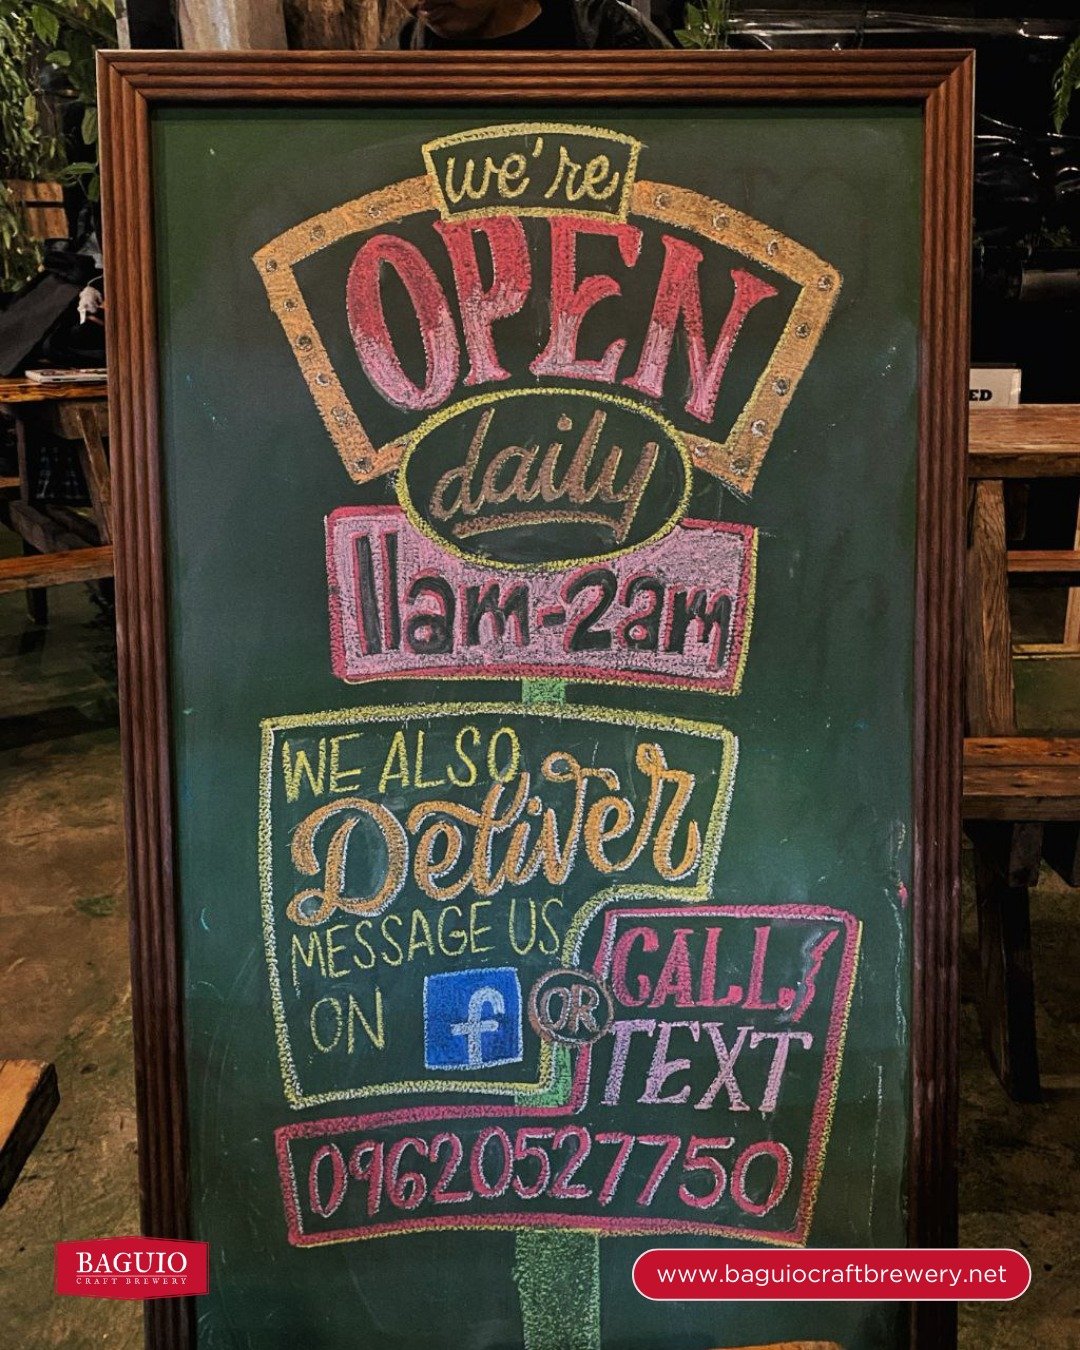 we're
OPEN
daily
11am-2am
WE ALSO
Deliver
MESSAGE US
ON f OR
CALL/
TEXT
09620527750
ED
BAGUIO
CRAFT BREWERY
www.baguiocraftbrewery.net